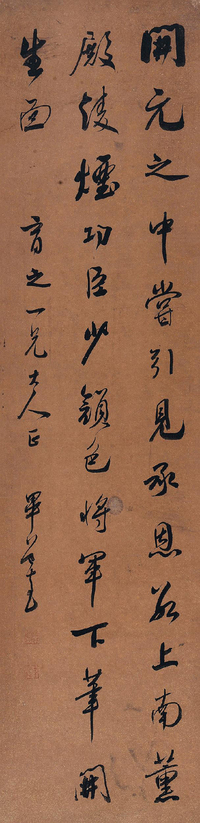 開元之中嘗引見承恩數上南薰
殿凌煙功臣少顏色將軍下筆開
生面
育之一兄大人正
畢